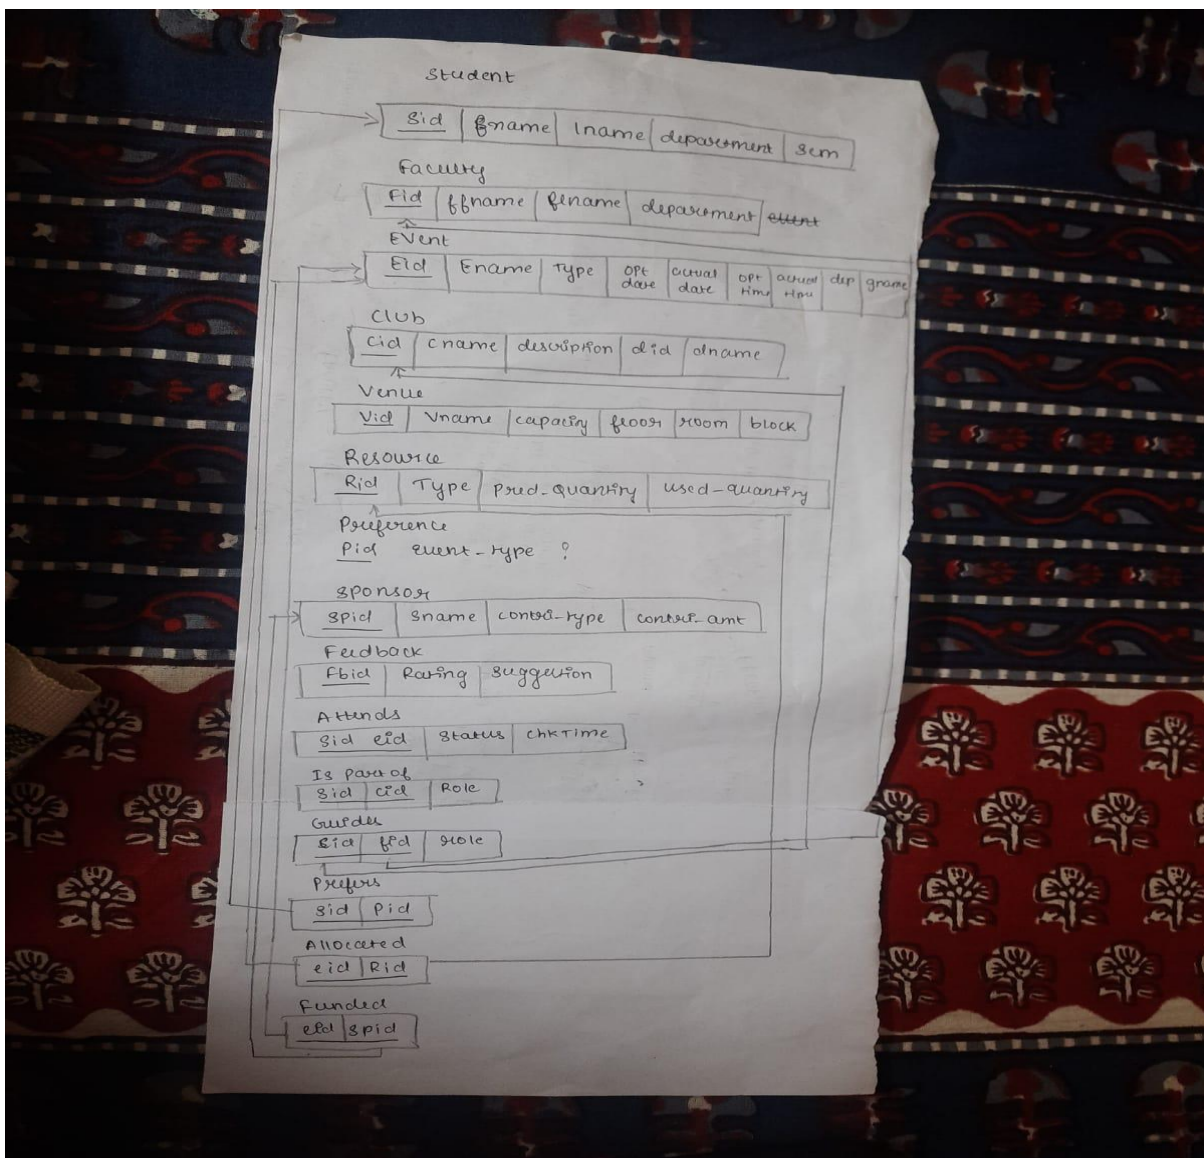 Student
Sid fname lname department sem
Faculty
Fid ffname flname department
Event
Eid Ename Type opt date actual date opt time actual time dep gname
Club
Cid Cname description did dname
Venue
Vid Vname capacity floor room block
Resource
Rid Type Pred_Quantity used_quantity
Preference
Pid event_type ?
Sponsor
Spid Sname contri_type contri_amt
Feedback
Fbid Rating Suggestion
Attends
Sid eid Status chkTime
Is part of
Sid cid Role
Guides
fid role
Prefers
Sid Pid
Allocated
eid Rid
Funded
eid Spid